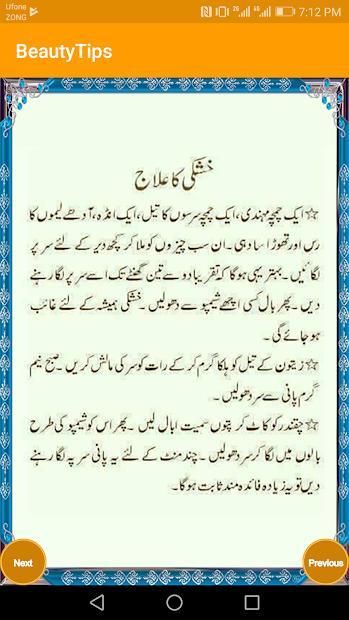 Ufone
ZONG
7:12 PM
BeautyTips
خشکی کا علاج
☆ایک چمچہ مہندی، ایک چمچہ سرسوں کا تیل، ایک انڈہ، آدھے لیموں کا
رس اور تھوڑا سا دہی۔ ان سب چیزوں کو ملا کر کچھ دیر کے لئے سر پر
لگائیں۔ بہتر یہی ہوگا کہ تقریبا دو سے تین گھنٹے تک اسے سر پر لگا رہنے
دیں۔ پھر بال کسی اچھے شیمپو سے دھولیں۔ خشکی ہمیشہ کے لئے غائب
ہو جائے گی۔
☆زیتون کے تیل کو ہلکا گرم کر کے رات کو سر کی مالش کریں۔ صبح نیم
گرم پانی سے سر دھولیں۔
☆چقندر کو کاٹ کر پتوں سمیت ابال لیں۔ پھر اس کو شیمپو کی طرح
بالوں میں لگا کر سر دھولیں۔ چند منٹ کے لئے یہ پانی سر پہ لگا رہنے
دیں تو یہ زیادہ فائدہ مند ثابت ہوگا۔
Next
Previous